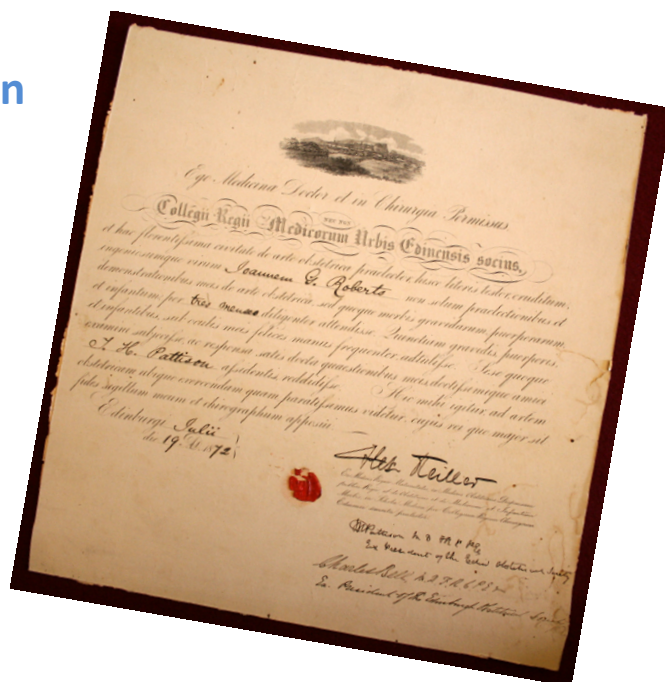 n
Ego Medicinæ Doctor et in Chirurgia Permissus
NEC NON
Collegii Regii Medicorum Urbis Edinensis socius,
et hac florentissima civitate de arte obstetrica praelector, hisce literis testor, eruditum,
ingeniosumque virum Joannem G. Roberts non solum praelectionibus et
demonstrationibus meis de arte obstetrica, sed quoque morbis gravidarum, puerperarum,
et infantum, per tres menses diligenter attendisse. Quinetiam gravidis, puerperis,
et infantibus, sub oculis meis felices manus frequenter adtulisse. Sese quoque
examini subjecisse, ac responsa satis docta quaestionibus meis doctissimique amici
J. H. Pattison assidentis, reddidisse. Hic mihi igitur, ad artem
obstetricam atque exercendum quam paratissimus videtur, cujus rei quo major sit
fides sigillum meum et chirographum apposui.
Edinburgi Julii
die 19 1872
Alex Keiller
Pattison M D
Ex President of the Edinr Obstetrical Society
Charles Bell M.D F.R.C.P.E
Ex. President of the Edinburgh Obstetrical Society